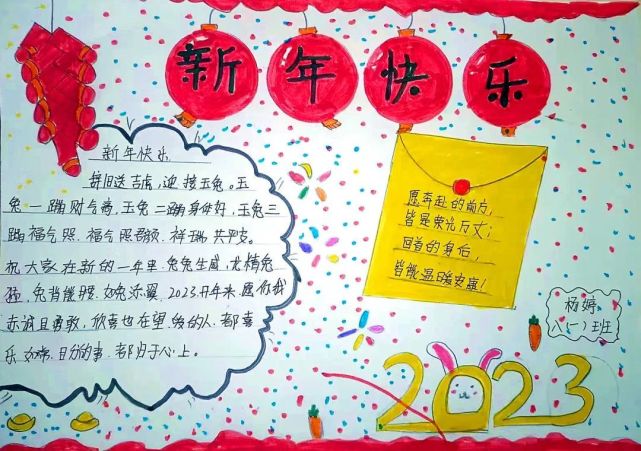 新年快乐
新年快乐
辞旧送吉虎,迎接玉兔。玉
兔一蹦财气高,玉兔二蹦身体好,玉兔三
蹦福气照。福气照 祥瑞共平安。
祝大家在新的一年里.兔兔生威.龙精兔
兔 2023 年来.愿你我
赤诚且勇敢,欣喜也在望 的人.都喜
乐 如常.日分的事.都归于心上。
愿奔赴的前方,
皆是荣光万丈;
回首的身后,
皆能温暖安康!
杨婷
八(一)班
2023